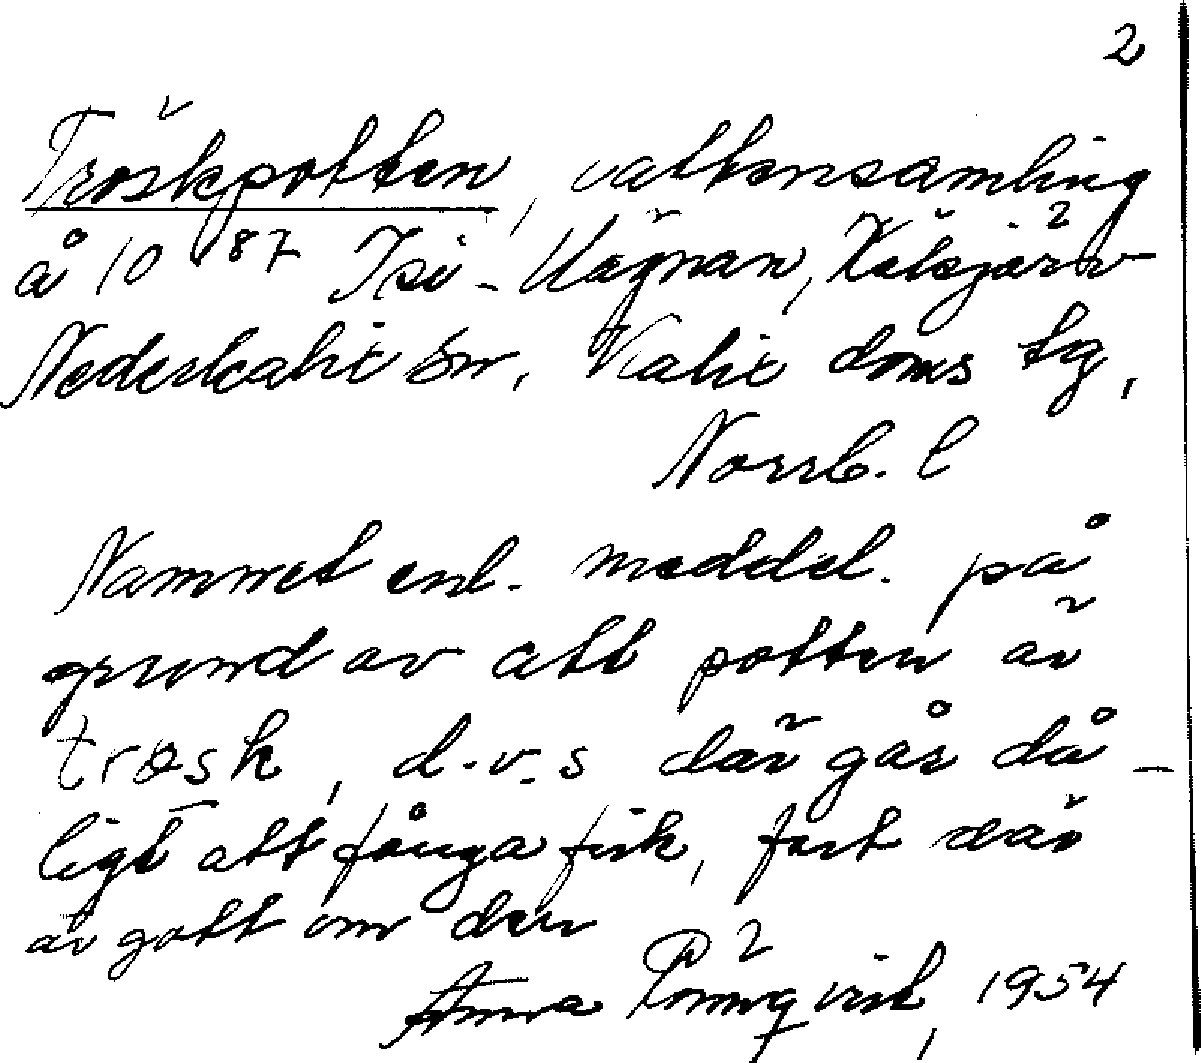 2
Tröskpotten, vattensamling
å 10 87 Isö-Vägnan, Kälsjärv
Nederkalix sn, Kalix doms sg,
Norrb. l
Namnet enl. meddel. på
grund av att potten är
trøsk, d.v.s där går då-
ligt att fånga fisk, fast där
är gott om den
Anna Rönnqvist, 1954